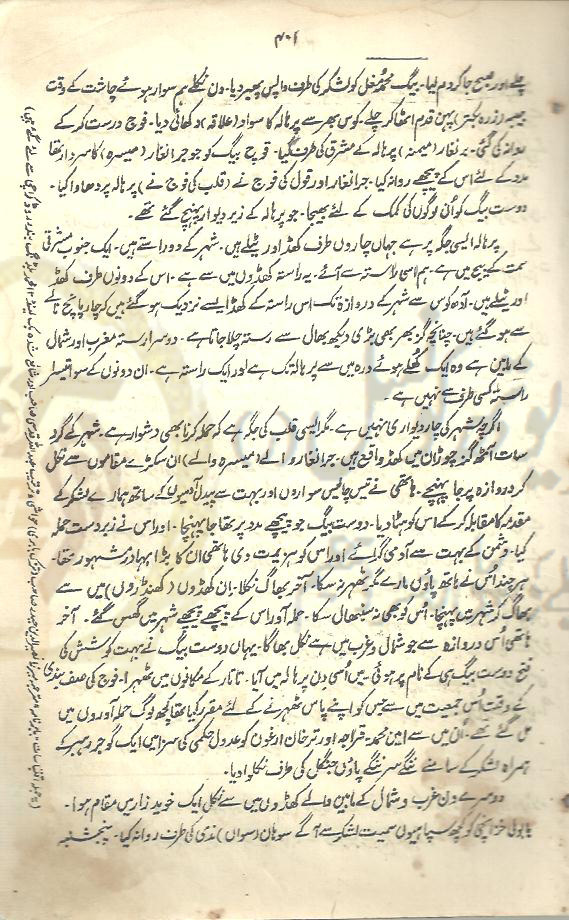 ۴۰۱
چلے اور صبح جا کر دم لیا۔ بیگ محمد مغل کو لشکر کی طرف واپس پھیر دیا۔ دن نکلے ہم سوار ہوئے چاشت کے وقت
جیبہ (زرہ بکتر) پہن قدم اٹھا کر چلے۔ کوس بھر سے پرہالہ کا سواد (علاقہ) دکھائی دیا۔ فوج درست کر کے
روانہ کی گئی۔ برنغار (میمنہ) پرہالہ کے مشرق کی طرف گیا۔ قوچ بیگ کو جو جرانغار (میسرہ) کا سردار تھا
مدد کے لئے اس کے پیچھے روانہ کیا۔ جرانغار اور قول کی فوج نے (قلب کی فوج نے) پرہالہ پر دھاوا کیا۔
دوست بیگ کو اُن لوگوں کی کمک کے لئے بھیجا۔ جو پرہالہ کے زیر دیوار پہنچ گئے تھے۔
پرہالہ ایسی جگہ پر ہے جہاں چاروں طرف کھڈ اور ٹیلے ہیں۔ شہر کے دو راستے ہیں۔ ایک جنوب مشرقی
سمت کے بیچ میں ہے۔ ہم اسی راستہ سے آئے۔ یہ راستہ کھڈوں میں سے ہے۔ اس کے دونوں طرف کھڈ
اور ٹیلے ہیں۔ آدھ کوس سے شہر کے دروازہ تک اس راستہ کے کھڈ ایسے نزدیک ہو گئے ہیں کہ چار پانچ تانگے
سے ہو گئے ہیں۔ چنانچہ گز بھر بھی بڑی دیکھ بھال سے رستہ چلا جاتا ہے۔ دوسرا رستہ مغرب اور شمال
کے مابین ہے وہ ایک کُھلے ہوئے درہ میں سے پرہالہ تک ہے اور ایک راستہ ہے۔ ان دونوں کے سوا تیسرا
راستہ کسی طرف سے نہیں ہے۔
اگرچہ شہر کی چار دیواری نہیں ہے۔ مگر ایسی قلب کی جگہ ہے کہ حملہ کرنا بھی دشوار ہے۔ شہر کے گرد
سات آٹھ گز چوڑان میں کھڈ واقع ہیں۔ جرانغار والے (میسرہ والے) ان سکڑے مقاموں سے نکل
کر دروازہ پر جا پہنچے۔ ہاتھی نے تیس چالیس سواروں اور بہت سے پیدل آدمیوں کے ساتھ ہمارے لشکر کے
مقدمہ کا مقابلہ کر کے اس کو ہٹا دیا۔ دوست بیگ جو پیچھے مدد پر تھا جا پہنچا۔ اور اس نے زبردست حملہ
کیا۔ دشمن کے بہت سے آدمی گرائے اور اس کو ہزیمت دی ہاتھی ان کا بڑا بہادر مشہور تھا۔
ہر چند اُس نے ہاتھ پاؤں مارے مگر ٹھہر نہ سکا۔ آخر بھاگ نکلا۔ ان کھڈوں (کھنڈروں) میں سے
بھاگ کر شہر میں پہنچا۔ اُس کو بھی نہ سنبھال سکا۔ حملہ آور اس کے پیچھے پیچھے شہر میں گھس گئے۔ آخر
ہاتھی اُس دروازہ سے جو شمال و غرب میں ہے نکل بھاگا۔ یہاں دوست بیگ نے بہت کوشش کی
فتح دوست بیگ ہی کے نام پر ہوئی۔ میں اُسی دن پرہالہ میں آیا۔ تاتار کے مکانوں میں ٹھہرا۔ فوج کی صف بندی
کے وقت اُس جمعیت میں سے جس کو اپنے پاس ٹھہرنے کے لئے مقرر کیا تھا کچھ لوگ حملہ آوروں میں
مل گئے تھے۔ اُن میں سے امین محمد۔ قراجہ اور ترخان ارغون کو عدول حکمی کی سزا میں ایک گوجر رہبر کے
ہمراہ لشکر کے سامنے ننگے سر ننگے پاؤں جنگل کی طرف نکلوا دیا۔
دوسرے دن غرب و شمال کے مابین والے کھڈوں میں سے نکل ایک خوید زار میں مقام ہوا۔
بابولی خزانچی کو کچھ سپاہیوں سمیت لشکر سے آگے سوہان (سواں) ندی کی طرف روانہ کیا۔ پنجشنبہ